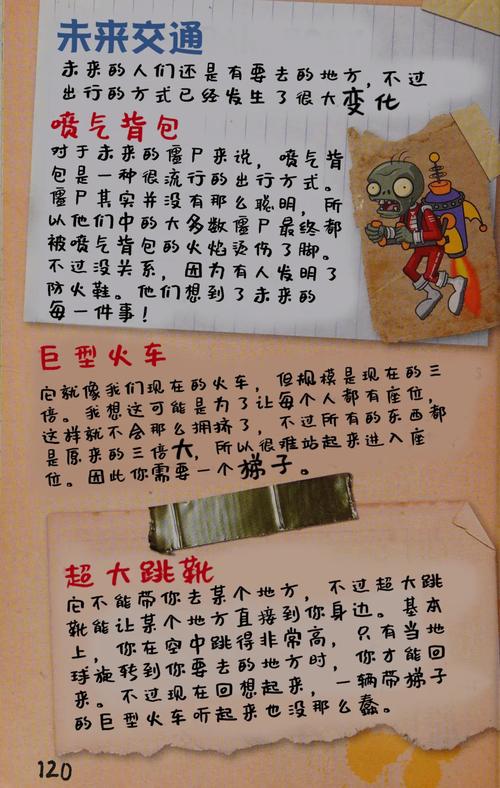 未来交通
未来的人们还是有要去的地方，不过
出行的方式已经发生了很大变化
喷气背包
对于未来的僵尸来说，喷气背
包是一种很流行的出行方式。
僵尸其实并没有那么聪明，所
以他们中的大多数僵尸最终都
被喷气背包的火焰烫伤了脚。
不过没关系，因为有人发明了
防火鞋。他们想到了未来的
每一件事！
巨型火车
它就像我们现在的火车，但规模是现在的三
倍。我想这可能是为了让每个人都有座位，
这样就不会那么拥挤了，不过所有的东西都
是原来的三倍大，所以很难站起来进入座
位。因此你需要一个梯子。
超大跳靴
它不能带你去某个地方，不过超大跳
靴能让某个地方直接到你身边。基本
上，你在空中跳得非常高，只有当地
球旋转到你要去的地方时，你才能回
来。不过现在回想起来，一辆带梯子
的巨型火车听起来也没那么蠢。
120